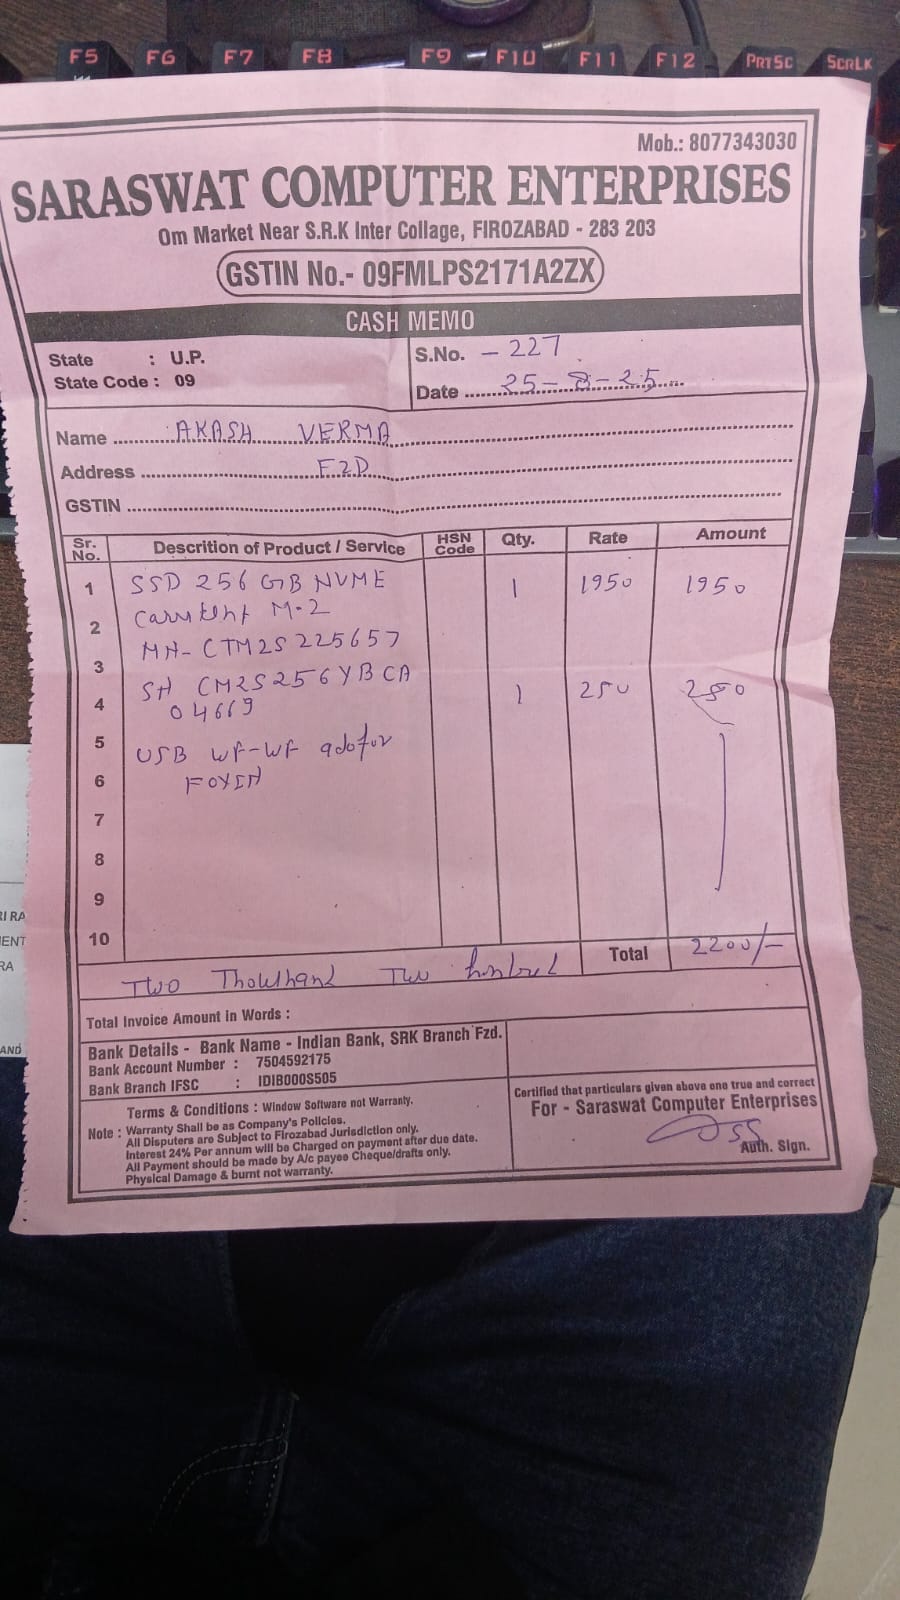 F5 F6 F7 F8 F9 F10 F11 F12 PRTSC SCRLK
Mob.: 8077343030
SARASWAT COMPUTER ENTERPRISES
Om Market Near S.R.K Inter Collage, FIROZABAD - 283 203
GSTIN No.- 09FMLPS2171A2ZX
CASH MEMO
State : U.P.
State Code : 09
S.No. - 227
Date 25-8-25
Name AKASH VERMA
Address FZD
GSTIN
Sr. No. Descrition of Product / Service HSN Code Qty. Rate Amount
1 SSD 256 GB NVME 1 1950 1950
2 M.2
3 MN- CTM2S225657
4 SN CM2S256YBCA 1 250 250
04669
5 USB WF-WF
6 FOXIN
7
8
9
10
Total 2200/-
Two Two
Total Invoice Amount in Words :
Bank Details - Bank Name - Indian Bank, SRK Branch Fzd.
Bank Account Number : 7504592175
Bank Branch IFSC : IDIB000S505
Terms & Conditions : Window Software not Warranty.
Note : Warranty Shall be as Company's Policies.
All Disputers are Subject to Firozabad Jurisdiction only.
Interest 24% Per annum will be Charged on payment after due date.
All Payment should be made by A/c payee Cheque/drafts only.
Physical Damage & burnt not warranty.
Certified that particulars given above one true and correct
For - Saraswat Computer Enterprises
Auth. Sign.
RI RA
MENT
RA
AND